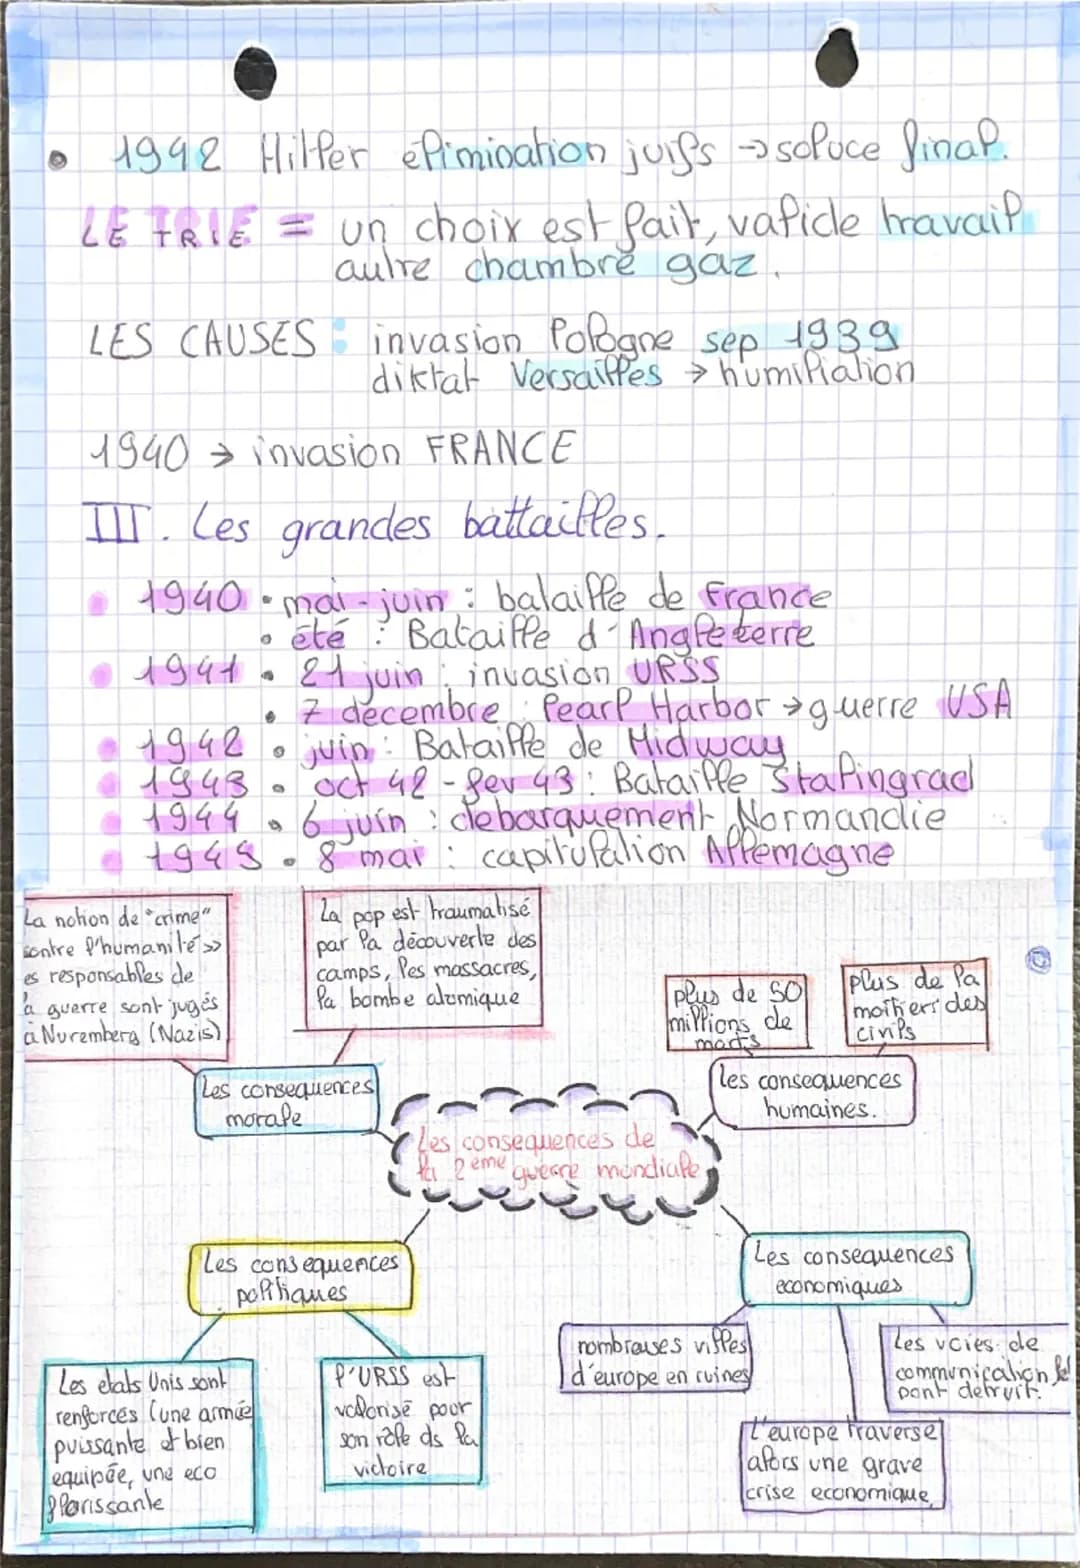 • 1942 Hitler élimination juifs → soluce final.
LE TRIE = un choix est fait, valide travail
autre chambre gaz.
LES CAUSES : invasion Pologne sep 1939
diktat Versailles → humiliation
1940 → invasion FRANCE
III. Les grandes battailles.
• 1940 • mai-juin : bataille de France
• été : Bataille d'Angleterre
• 1941 • 21 juin : invasion URSS
• 7 decembre : Pearl Harbor → guerre USA
• 1942 • juin : Bataille de Midway
• 1943 • oct 42 - fev 43 : Bataille Stalingrad
• 1944 • 6 juin : debarquement Normandie
• 1945 • 8 mai : capitulation Allemagne
La notion de "crime"
contre l'humanité >>
es responsables de
la guerre sont jugés
à Nuremberg (Nazis)
La pop est traumatisé
par la découverte des
camps, les massacres,
la bombe atomique
plus de 50
millions de
morts
plus de la
moitiers des
civils
Les consequences
morale
Les consequences
humaines.
Les consequences de
la 2ème guerre mondiale
Les consequences
politiques
Les consequences
economiques
Les etats Unis sont
renforcés (une armée
puissante et bien
equipée, une eco
florissante
l'URSS est
valorisé pour
son rôle ds la
victoire
nombreuses villes
d'europe en ruines
Les voies de
communication
sont detruit.
L'europe traverse
alors une grave
crise economique,